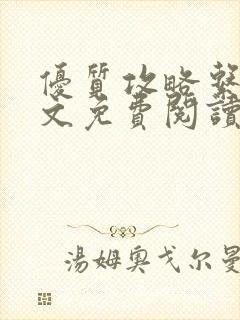 優質攻略繫
文免費閱讀
湯姆奧戈尔曼